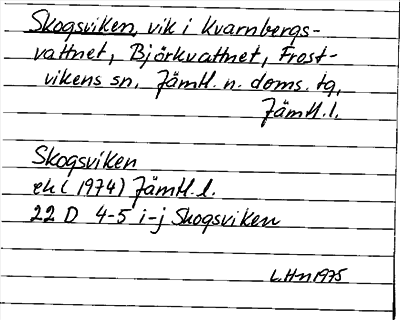 Skogsviken, vik i Kvarnbergs-
vattnet, Björkvattnet, Frost-
vikens sn, Jämtl. n. doms. tg,
Jämtl.l.
Skogsviken
ek (1974) Jämtl.l.
22 D 4-5 i-j Skogsviken
L.Hn 1975